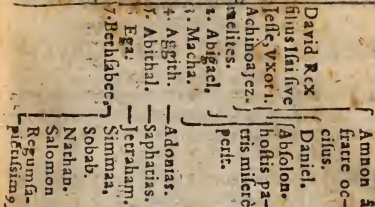 David Rex
filius Iſai ſive
Jeſſe, Vxor 1.
Achinoajez-
raelites.
2. Abigael,
3. Macha.
4. Aggith.
5. Abithal.
6. Ega.
7. Bethſabee.
Amnon à
fratre oc-
ciſus.
Daniel.
Abſolon.
hoſtis pa-
tris miſerè
perit.
Adonias.
Saphatias.
Jetraham.
Simmaa.
Sobab.
Nathan.
Salomon
Regum ſa-